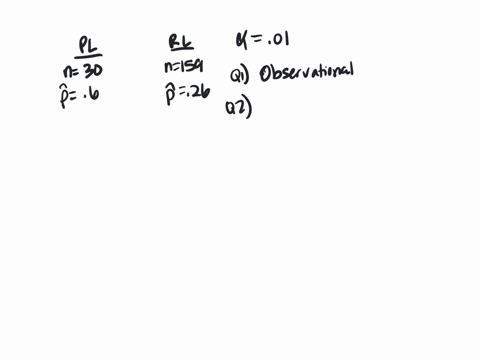 PL
n=30
p̂=.6
RL
n=159
p̂=.26
α=.01
Q1) Observational
Q2)